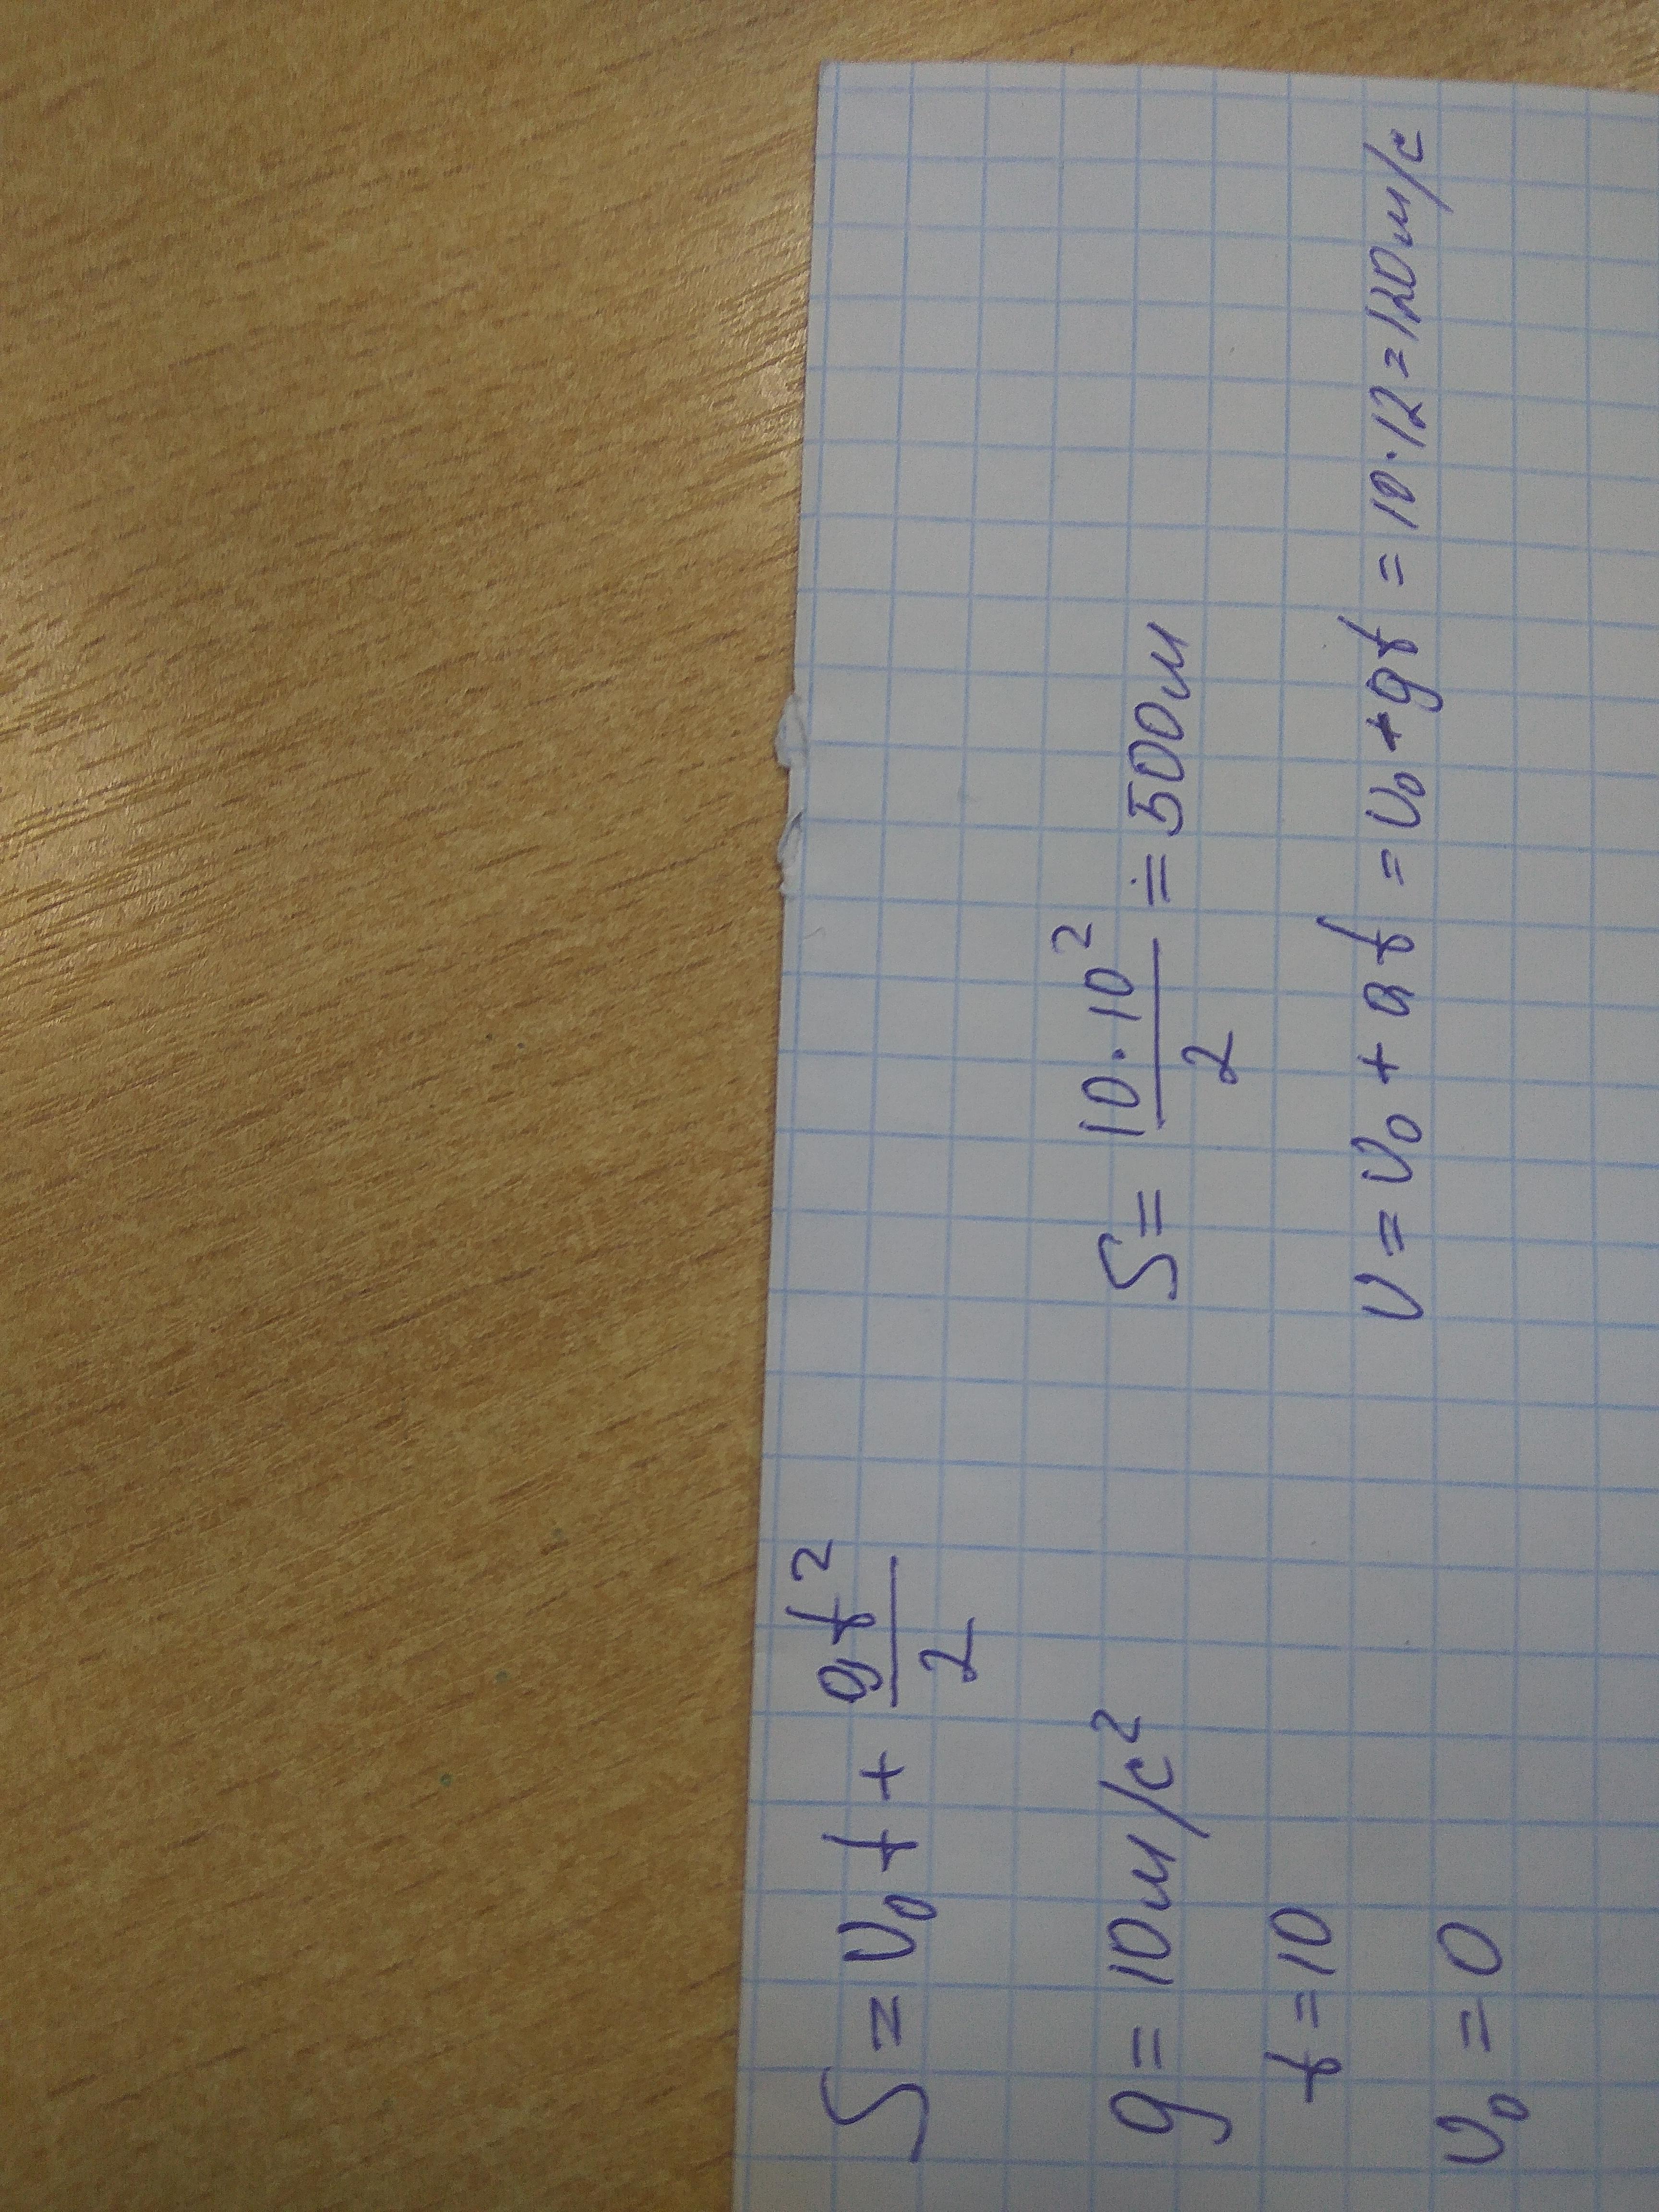 S = v₀t + gt²/2
g = 10 м/с²
t = 10
v₀ = 0
S = 10·10²/2 = 500м
v = v₀ + at = v₀ + gt = 10·12 = 120м/с